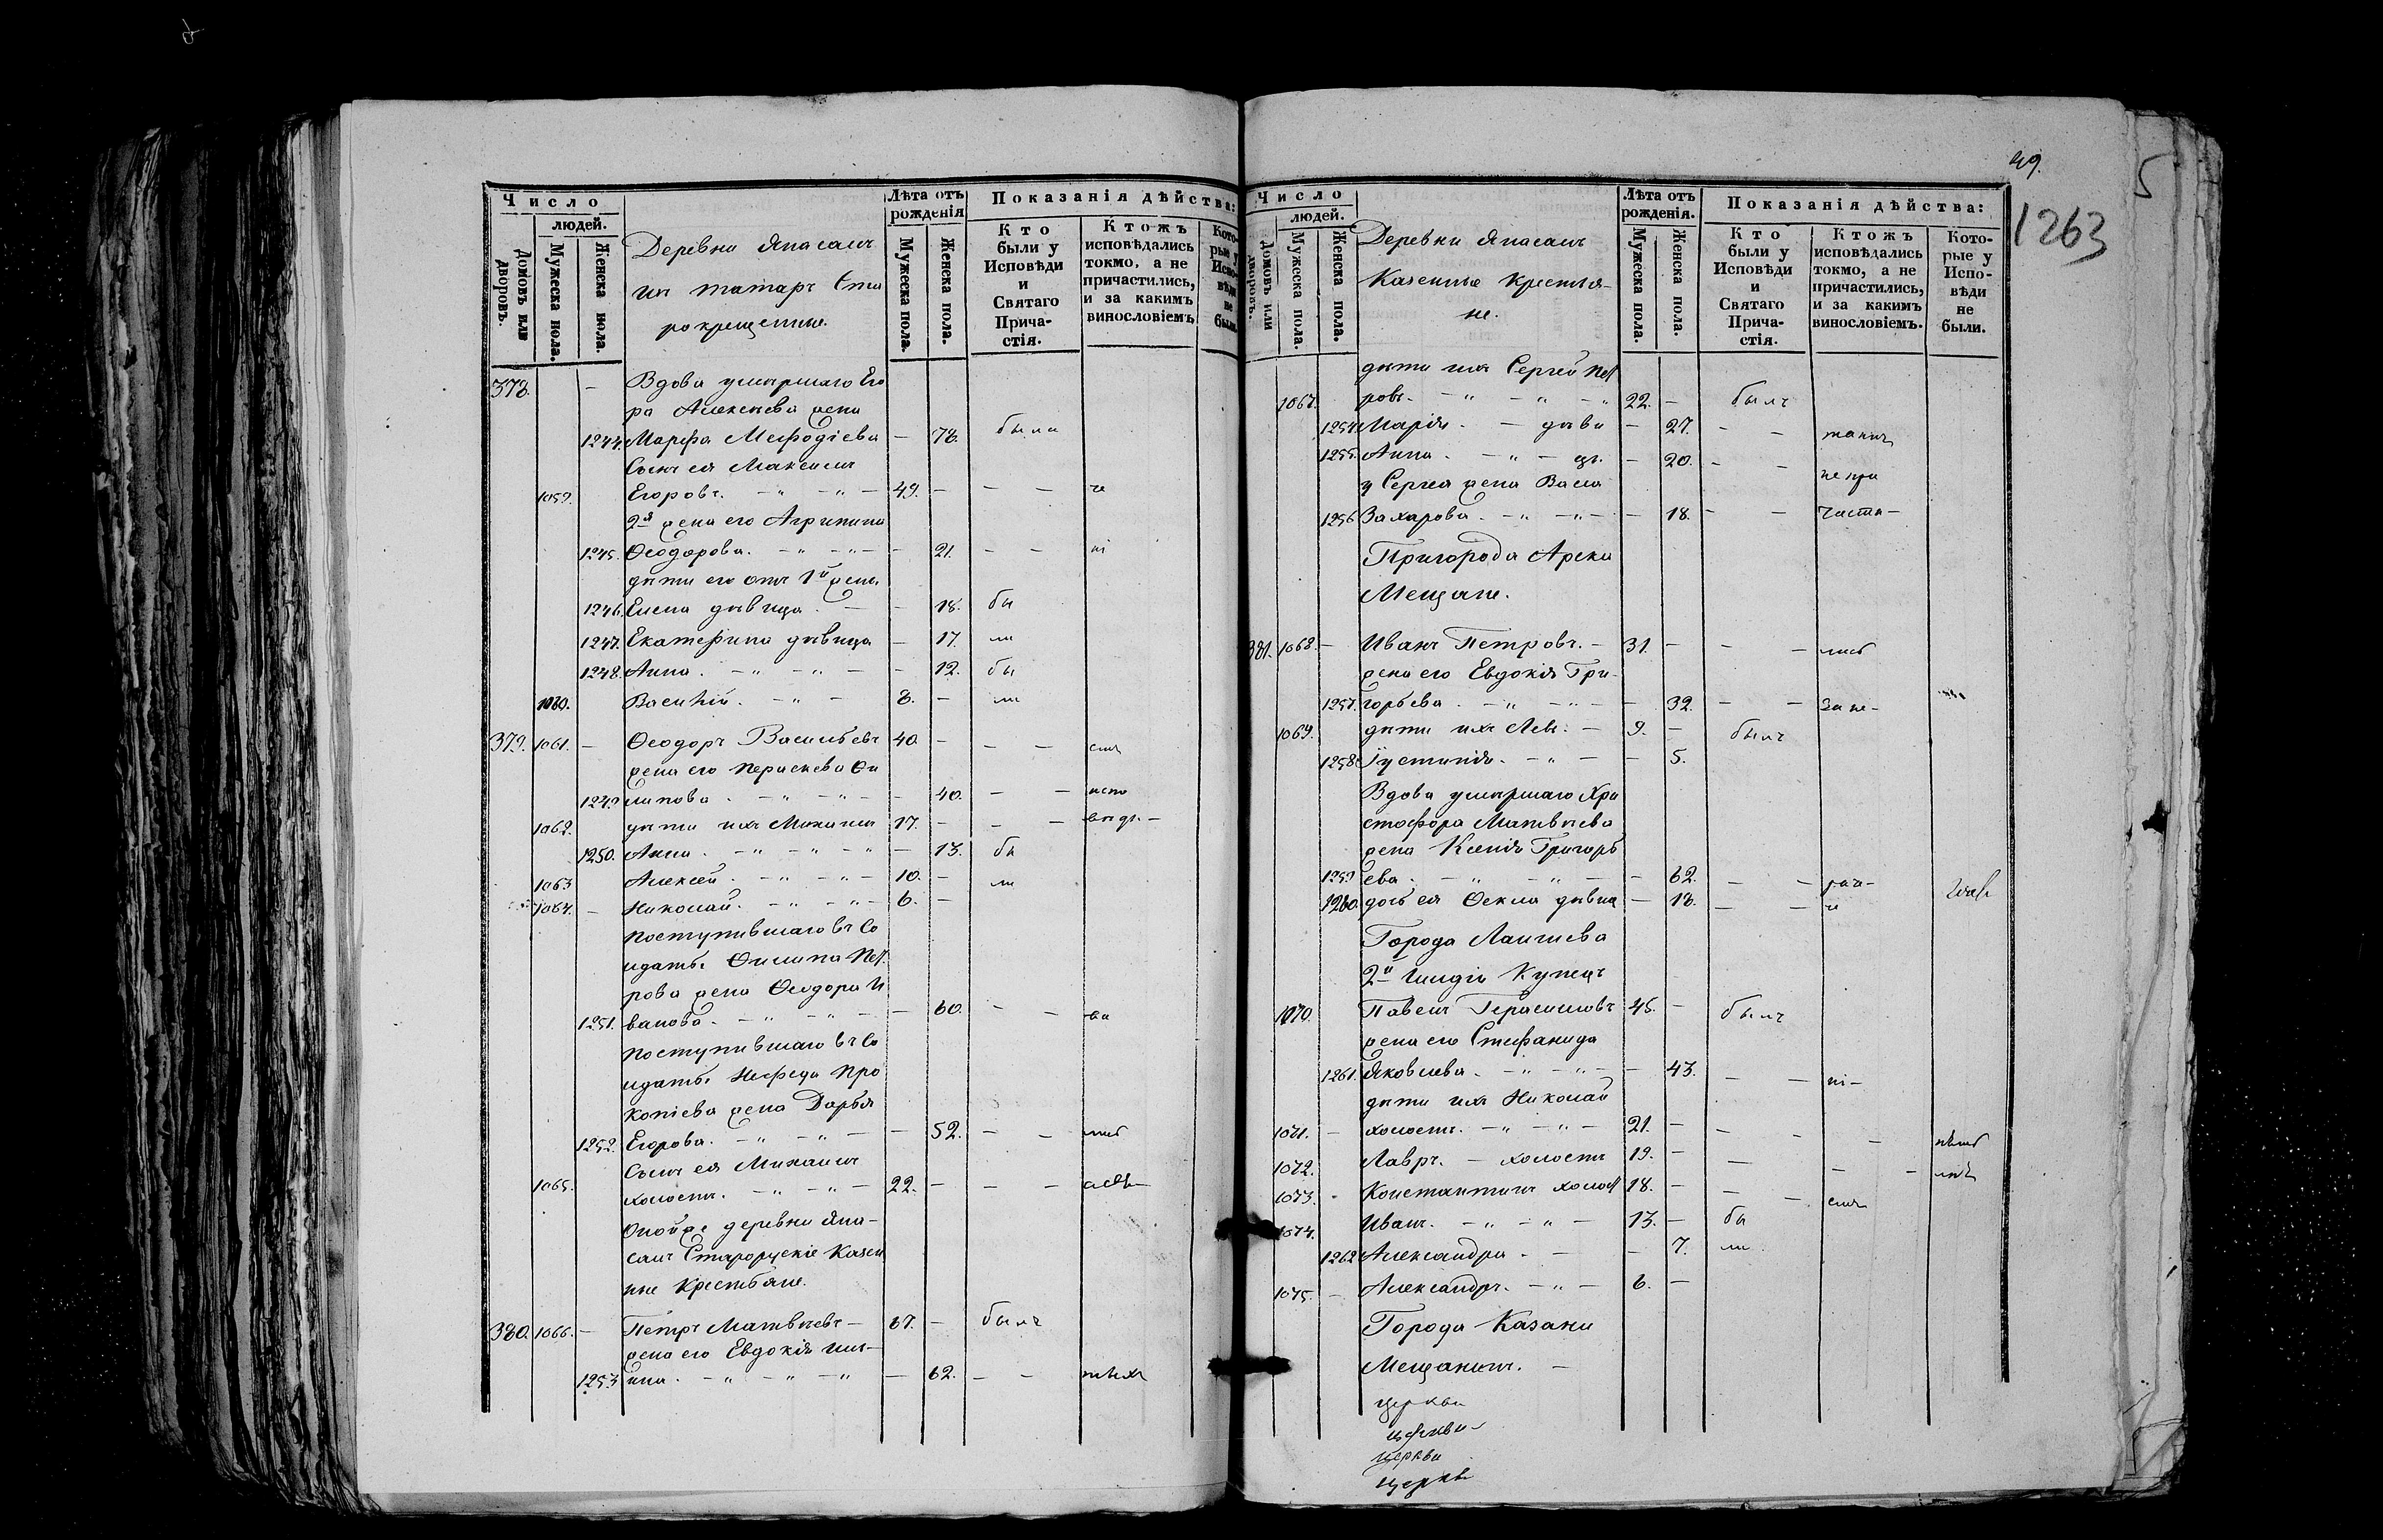 49.
5
1263
Число
людей.
Домовъ или дворовъ.
Мужеска пола.
Женска пола.
Деревни Япасалъ
изъ татаръ Ста
рокрещенные.
Лѣта отъ
рожденія
Мужеска пола.
Женска пола.
Показанія дѣйства:
Кто
были у
Исповѣди
и
Святаго
Прича-
стія.
Ктожъ
исповѣдались
токмо, а не
причастились,
и за какимъ
винословіемъ
Кото-
рые у
Испо-
вѣди
не
были.
378. — Вдова умершаго Его
ра Алексѣева жена
1244. Марфа Мефодіева — 78. были
Сынъ ея Максимъ
1059. Егоровъ. — " — " — 49. — — —
2я жена его Агрипина
1245. Ѳеодорова. — " — " — — 21. — —
дѣти его отъ 1й жены
1246. Елена дѣвица. — — 18. бы
1247. Екатерина дѣвица — 17. ли
1248. Анна. — " — " — — 12. бы
1060. Василій. — " — 8. — ли
379. 1061. — Ѳеодоръ Васильевъ 40. — — —
жена его Параскева Фи
1249. липова. — " — " — — 40. — — испо
1062. дѣти ихъ Михаилъ 17. — — — вѣд. —
1250. Анна. — " — " — " — 13. бы
1063. Алексей. — " — " — 10. — ли
1064. — Николай. — " — " — 6. —
поступившаго въ Со
лдаты Филипа Пет
рова жена Ѳеодора И
1251. ванова. — " — " — — 60. — —
поступившаго въ Со
лдаты Нефеда Про
копіева жена Дарья
1252. Егорова. — " — " — — 52. — —
Сынъ ея Михаилъ
1065. холостъ. — " — " — 22. — — —
Оной же деревни Япа-
салъ Старорускіе Казен
ные Крестьяне.
380. 1066. — Петръ Матвѣевъ — 67. — былъ
жена его Евдокія Иль-
1253. ина. — " — " — " — 62. — —
Число
людей.
Домовъ или дворовъ.
Мужеска пола.
Женска пола.
Деревни Япасалъ
Казенные Крестья-
не.
Лѣта отъ
рожденія.
Мужеска пола.
Женска пола.
Показанія дѣйства:
Кто
были у
Исповѣди
и
Святаго
Прича-
стія.
Ктожъ
исповѣдались
токмо, а не
причастились,
и за какимъ
винословіемъ.
Кото-
рые у
Испо-
вѣди
не
были.
дѣти ихъ Сергей Пет
1067. ровъ. — " — " — " 22. — былъ
1254. Марія. — дѣви — 27. — —
1255. Анна. — " — дѣ. — 20. — — не при
у Сергея жена Васса
1256. Захарова. — " — " — — 18. — — части —
Пригорода Арска
Мещане.
381. 1068. — Иванъ Петровъ. — 31. — — —
жена его Евдокія Гри-
1257. горьева. — " — " — — 32. — — за не-
1069. дѣти ихъ Левъ. — 9. — былъ
1258. Іустинія. — " — — 5.
Вдова умершаго Хри
стофора Матвѣева
жена Ксенія Григорь
1259. ева. — " — " — — 62. — —
1260. дочь ея Ѳекла дѣвиа — 18. — —
Города Лаишева
2й Гилдіи Купецъ
1070. Павелъ Герасимовъ 45. — былъ
жена его Стефанида
1261. Яковлева. — " — " — — 43. — —
дѣти ихъ Николай
1071. — холостъ. — " — " — 21. — — — —
1072. Лавръ. — холостъ 19. — — — —
1073. Константинъ холост 18. — — —
1074. Иванъ. — " — " — 13. — бы
1262. Александра. — — 7. ли
1075. — Александръ. — " — 6. —
Города Казани
Мещанинъ. —
церкви
церкви
церкви
церкви